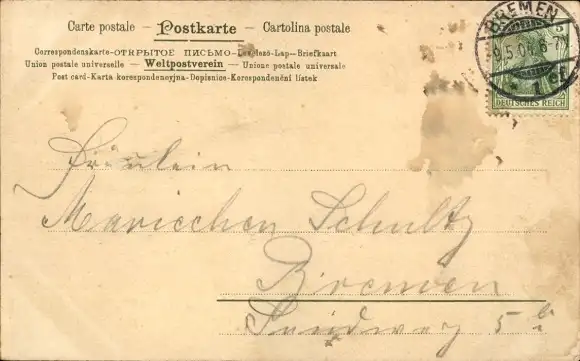 Carte postale – Postkarte – Cartolina postale
Correspondenskarte-ОТКРЫТОЕ ПИСЬМО-Levelező-Lap-Briefkaart
Union postale universelle – Weltpostverein – Unione postale universale
Post card-Karta korespondencyjna-Dopisnice-Korespondenční lístek
BREMEN
9.5.04. 6-7
1
5
DEUTSCHES REICH
Fräulein
Mariechen Schultz
Bremen
5